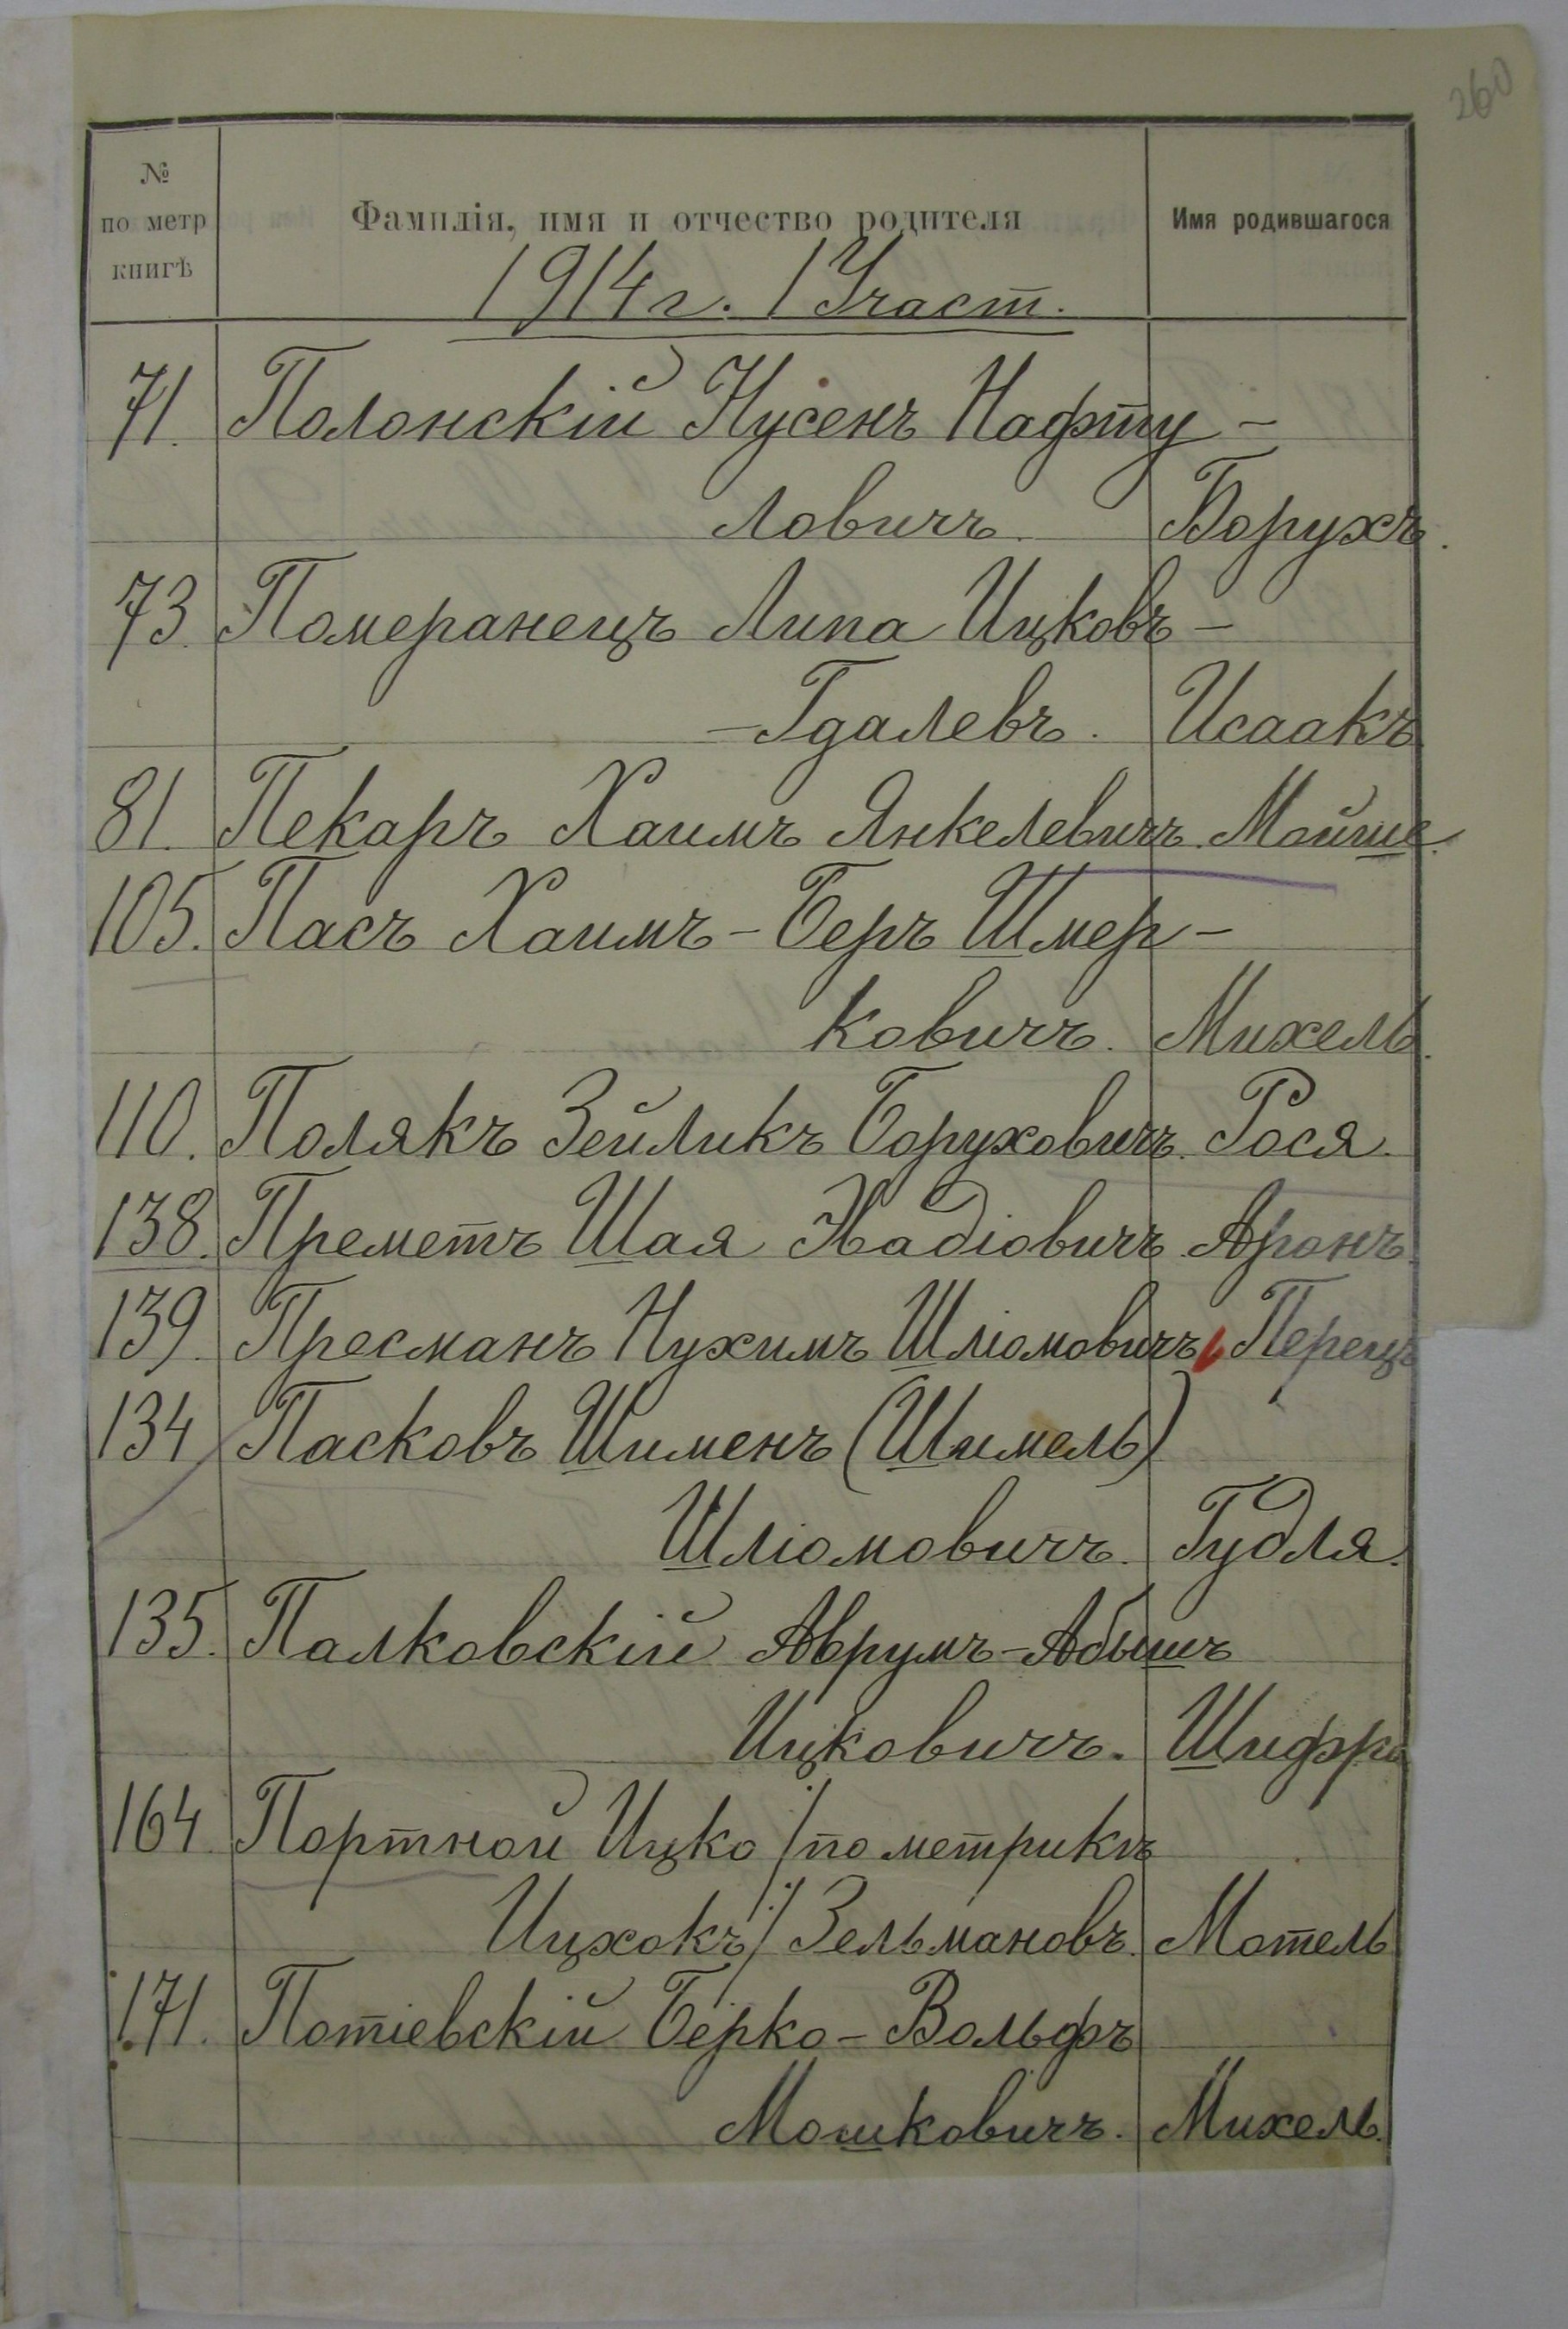 260
№ по метр книгѣ Фамилія, имя и отчество родителя Имя родившагося
1914 г. 1 Участ.
71. Полонскій Нусенъ Нафту-
ловичъ. Борухъ.
73. Померанецъ Липа Ицковъ-
-Гдалевъ. Исаакъ
81. Пекаръ Хаимъ Янкелевичъ. Мойше.
105. Пасъ Хаимъ-Беръ Шмер-
ковичъ. Михель.
110. Полякъ Зейликъ Боруховичъ. Рося.
138. Преметъ Шая Хадіовичъ. Аронъ.
139. Пресманъ Нухимъ Шліомовичъ Перецъ
134 Пасковъ Шименъ (Шимель)
Шліомовичъ. Гудля.
135. Палковскій Аврумъ-Абышъ
Ицковичъ. Шифра
164 Портной Ицко /по метрикѣ
Ицхокъ/ Зельмановъ. Мотель
171. Потіевскій Берко-Вольфъ
Мошковичъ. Михель.